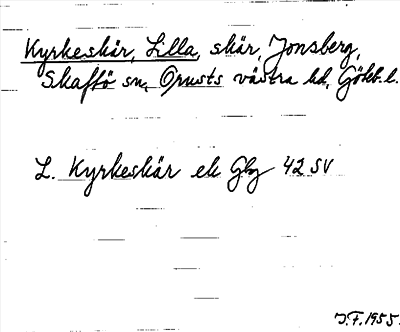 Kyrkeskär, Lilla, skär, Jonsberg,
Skaftö sn, Orusts västra hd, Göteb. l.
L. Kyrkeskär ek Gbg 42 SV
J.F. 1955.